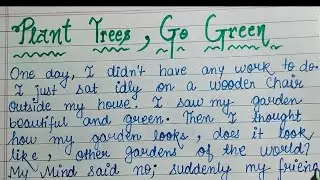 Plant Trees, Go Green
One day, I didn't have any work to do.
I just sat idly on a wooden chair
outside my house. I saw my garden
beautiful and green. Then I thought
how my garden looks, does it look
like, other gardens of the world?
My Mind said no; suddenly my friend